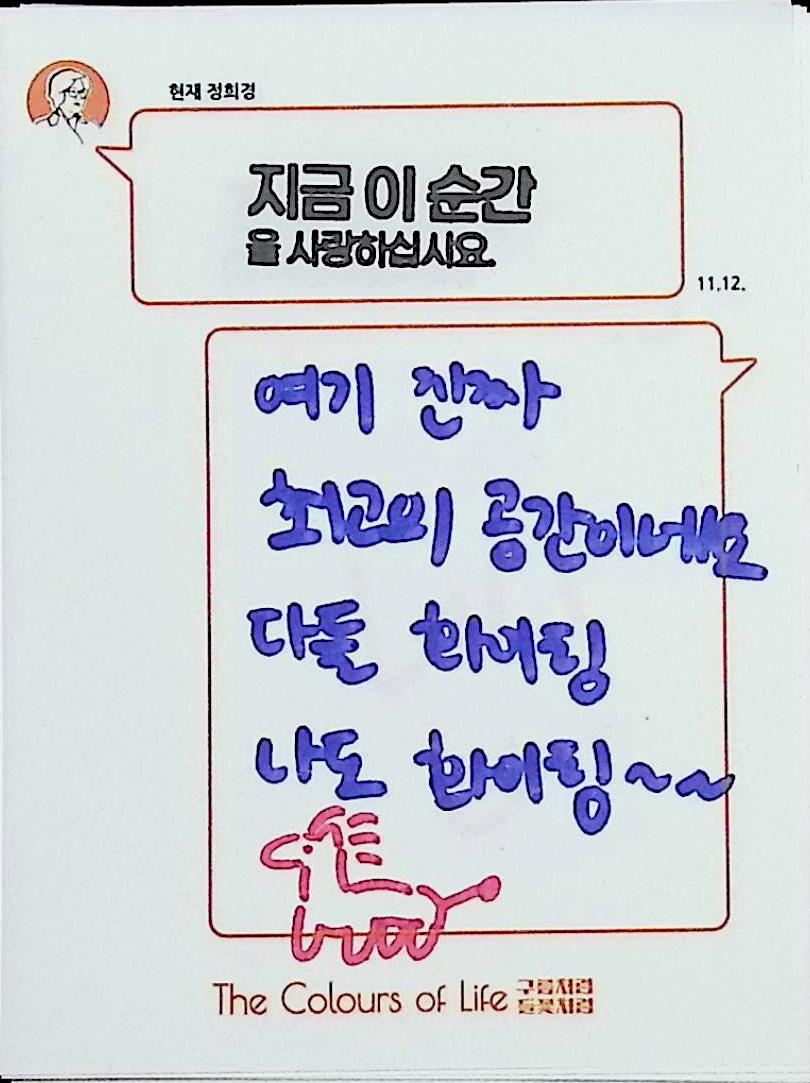 현재 정희경
지금 이 순간
을 사랑하십시요.
11.12.
여기 진짜
최고의 공간이네요
다들 화이팅
나도 화이팅~~
The Colours of Life 구름처럼
들꽃처럼